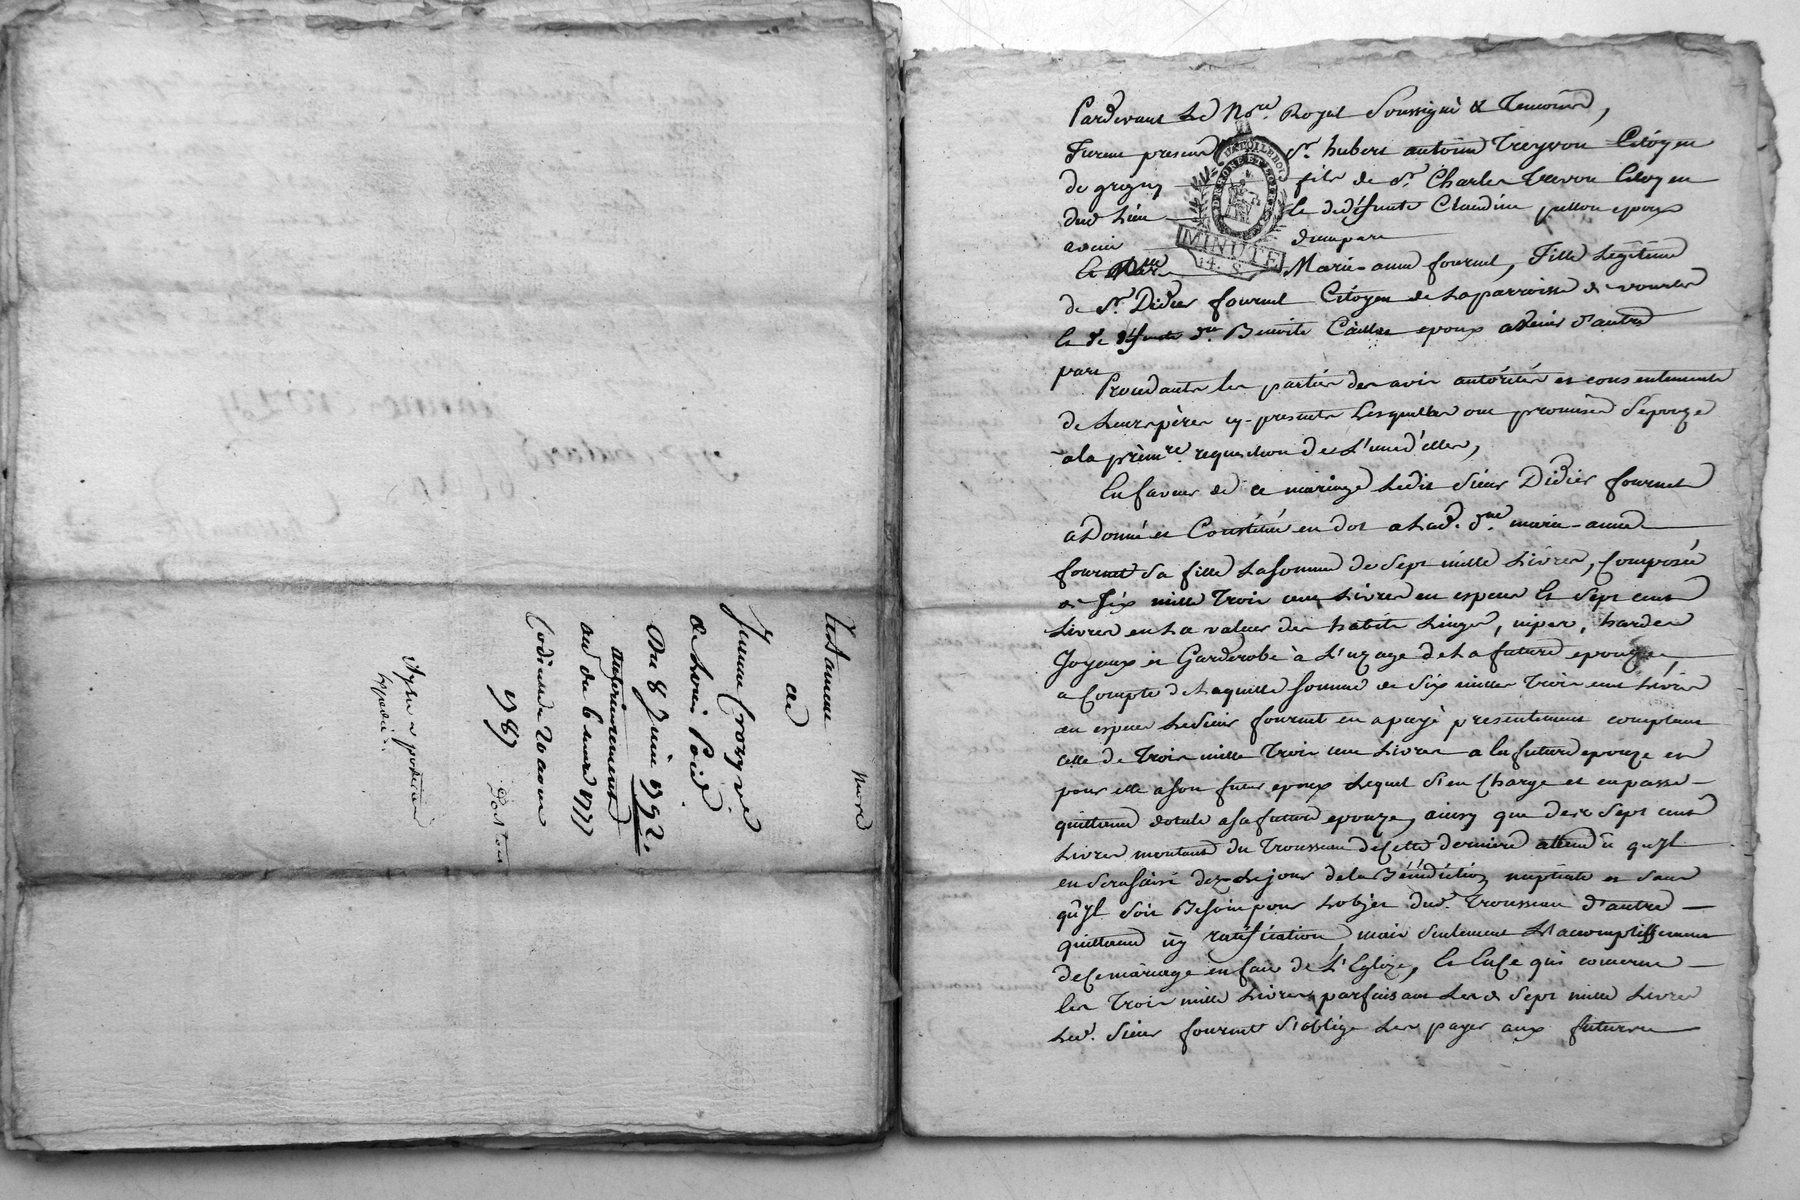 Testament
de
Jeanne Crozynié
de Louis Poid
Du 8 Juin 1792.
antérieurement
aud. du 6 mars 1777
Codicile de 20 aoust
1787
Pardevant Le No.re Royal Soussigné & Temoins,
Furent presents Sr. hubert antoine Treyvou Citoyen
de grigny fils de Sr. Charles Trevou Citoyen
dud. Lieu & de deffunte Claudine pullou epoux
avenir d'une part
Et Dlle Marie-anne fournel, Fille Legitime
de Sr. Didier fournel Citoyen de La parroisse de vourles
& de deffunte dlle Benoite Caillas epoux avenir d'autre
part
Procedants les parties des avis autorités et consentements
de Leurs pères cy-presents Lesquelles ont promis de S'epouze
a la prèmre. requisition de L'une d'elles,
En faveur de ce mariage Ledit Sieur Didier fournel
a Donné et Constitué en dot a Lad. dlle. marie-anne
fournel Sa fille La Somme de Sept mille Livres, Composée
de Six mille Trois cent Livres en especes & Sept cent
Livres en La valeur des habits Linges, nipes, hardes
Joyeaux et Garderobe à L'uzage de La future epouze,
a Compte de Laquelle Somme de Six milles Trois cent Livres
en especes Ledsieur fournel en a payé presentement comptant
celle de Trois mille Trois cent Livres a la future epouze et
pour elle a Son futur epoux Lequel S'en Charge et en passe
quittance dotale a Sa future epouze, ainsy que des Sept cent
Livres montant du Trousseau de Cette derniere attendu qu'yl
en Sera Saisi dez Le jour de la Bénédiction nuptiale et Sans
qu'yl Soit Besoin pour L'objet dud. Trousseau d'autre
quittance ny ratification, mais Seulement L'accomplissement
de Ce mariage en face de L'Eglize, & En Ce qui concerne
les Trois mille Livres parfaisant Les d. Sept mille Livres
Led. Sieur fournel S'oblige Les payer aux futurs
MINUTE